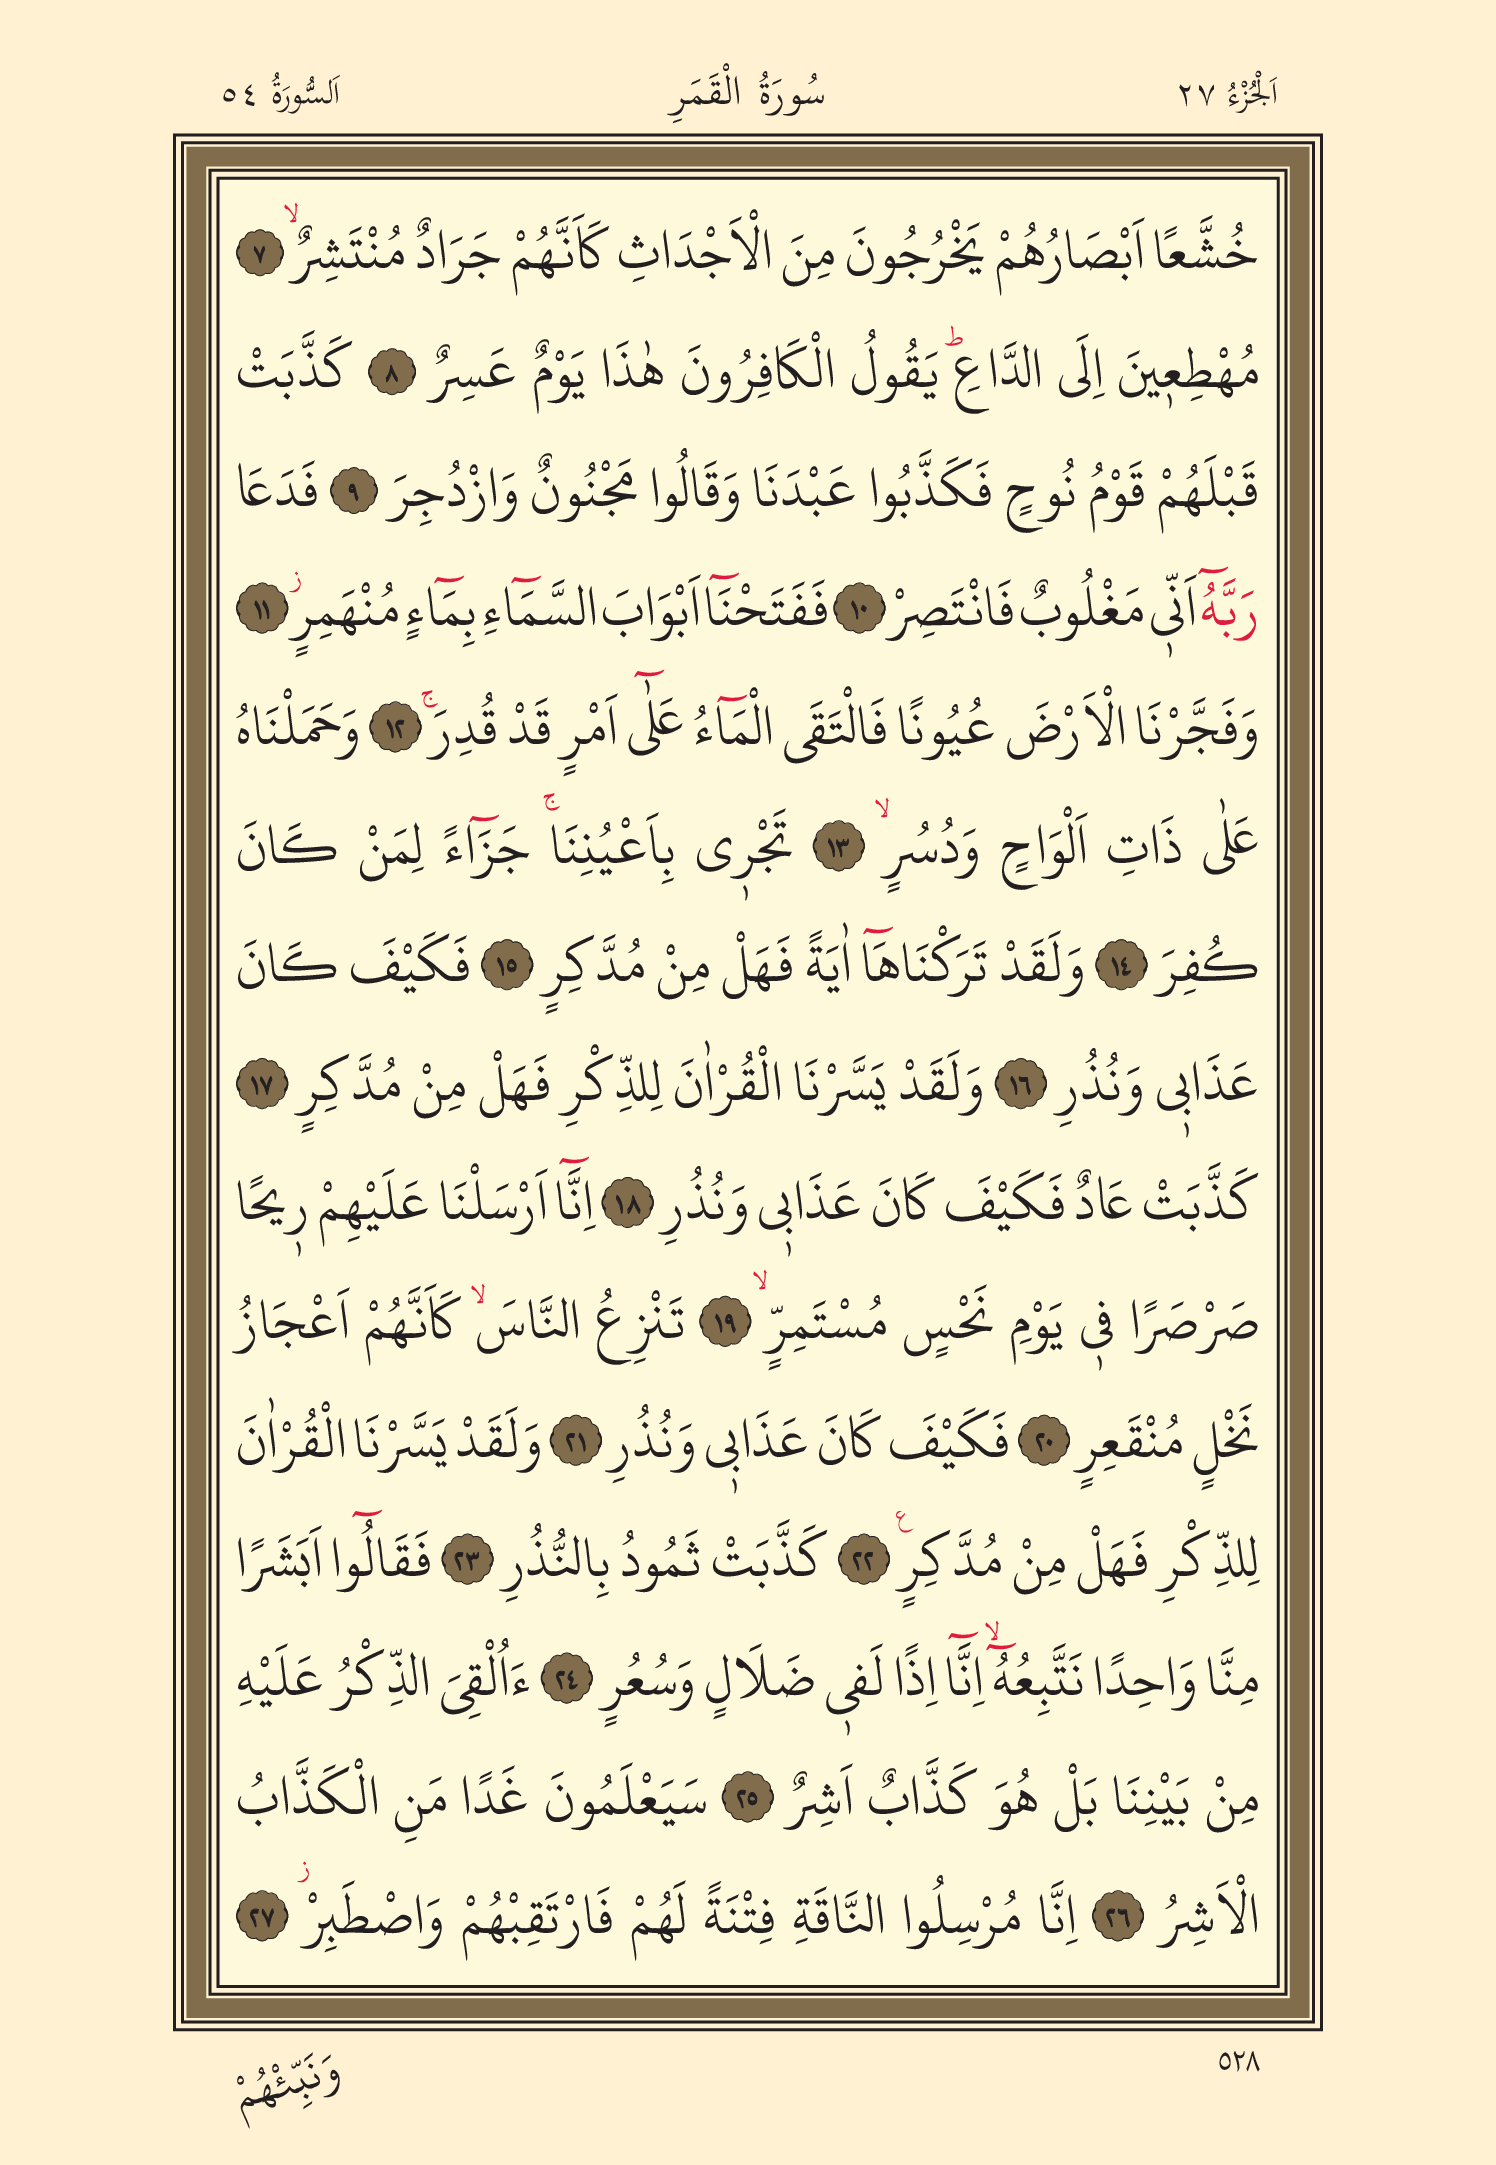 اَلْجُزْءُ ٢٧
سُورَةُ الْقَمَرِ
اَلسُّورَةُ ٥٤
خُشَّعًا اَبْصَارُهُمْ يَخْرُجُونَ مِنَ الْاَجْدَاثِ كَاَنَّهُمْ جَرَادٌ مُنْتَشِرٌۙ ﴿٧﴾
مُهْطِع۪ينَ اِلَى الدَّاعِۜ يَقُولُ الْكَافِرُونَ هٰذَا يَوْمٌ عَسِرٌ ﴿٨﴾ كَذَّبَتْ
قَبْلَهُمْ قَوْمُ نُوحٍ فَكَذَّبُوا عَبْدَنَا وَقَالُوا مَجْنُونٌ وَازْدُجِرَ ﴿٩﴾ فَدَعَا
رَبَّهُٓ اَنّ۪ي مَغْلُوبٌ فَانْتَصِرْ ﴿١٠﴾ فَفَتَحْنَٓا اَبْوَابَ السَّمَٓاءِ بِمَٓاءٍ مُنْهَمِرٍۘ ﴿١١﴾
وَفَجَّرْنَا الْاَرْضَ عُيُونًا فَالْتَقَى الْمَٓاءُ عَلٰٓى اَمْرٍ قَدْ قُدِرَۚ ﴿١٢﴾ وَحَمَلْنَاهُ
عَلٰى ذَاتِ اَلْوَاحٍ وَدُسُرٍۙ ﴿١٣﴾ تَجْر۪ي بِاَعْيُنِنَاۚ جَزَٓاءً لِمَنْ كَانَ
كُفِرَ ﴿١٤﴾ وَلَقَدْ تَرَكْنَاهَٓا اٰيَةً فَهَلْ مِنْ مُدَّكِرٍ ﴿١٥﴾ فَكَيْفَ كَانَ
عَذَاب۪ي وَنُذُرِ ﴿١٦﴾ وَلَقَدْ يَسَّرْنَا الْقُرْاٰنَ لِلذِّكْرِ فَهَلْ مِنْ مُدَّكِرٍ ﴿١٧﴾
كَذَّبَتْ عَادٌ فَكَيْفَ كَانَ عَذَاب۪ي وَنُذُرِ ﴿١٨﴾ اِنَّٓا اَرْسَلْنَا عَلَيْهِمْ ر۪يحًا
صَرْصَرًا ف۪ي يَوْمِ نَحْسٍ مُسْتَمِرٍّۙ ﴿١٩﴾ تَنْزِعُ النَّاسَۙ كَاَنَّهُمْ اَعْجَازُ
نَخْلٍ مُنْقَعِرٍ ﴿٢٠﴾ فَكَيْفَ كَانَ عَذَاب۪ي وَنُذُرِ ﴿٢١﴾ وَلَقَدْ يَسَّرْنَا الْقُرْاٰنَ
لِلذِّكْرِ فَهَلْ مِنْ مُدَّكِرٍ۟ ﴿٢٢﴾ كَذَّبَتْ ثَمُودُ بِالنُّذُرِ ﴿٢٣﴾ فَقَالُٓوا اَبَشَرًا
مِنَّا وَاحِدًا نَتَّبِعُهُٓۙ اِنَّٓا اِذًا لَف۪ي ضَلَالٍ وَسُعُرٍ ﴿٢٤﴾ ءَاُلْقِيَ الذِّكْرُ عَلَيْهِ
مِنْ بَيْنِنَا بَلْ هُوَ كَذَّابٌ اَشِرٌ ﴿٢٥﴾ سَيَعْلَمُونَ غَدًا مَنِ الْكَذَّابُ
الْاَشِرُ ﴿٢٦﴾ اِنَّا مُرْسِلُوا النَّاقَةِ فِتْنَةً لَهُمْ فَارْتَقِبْهُمْ وَاصْطَبِرْۘ ﴿٢٧﴾
٥٢٨
وَنَبِّئْهُمْ